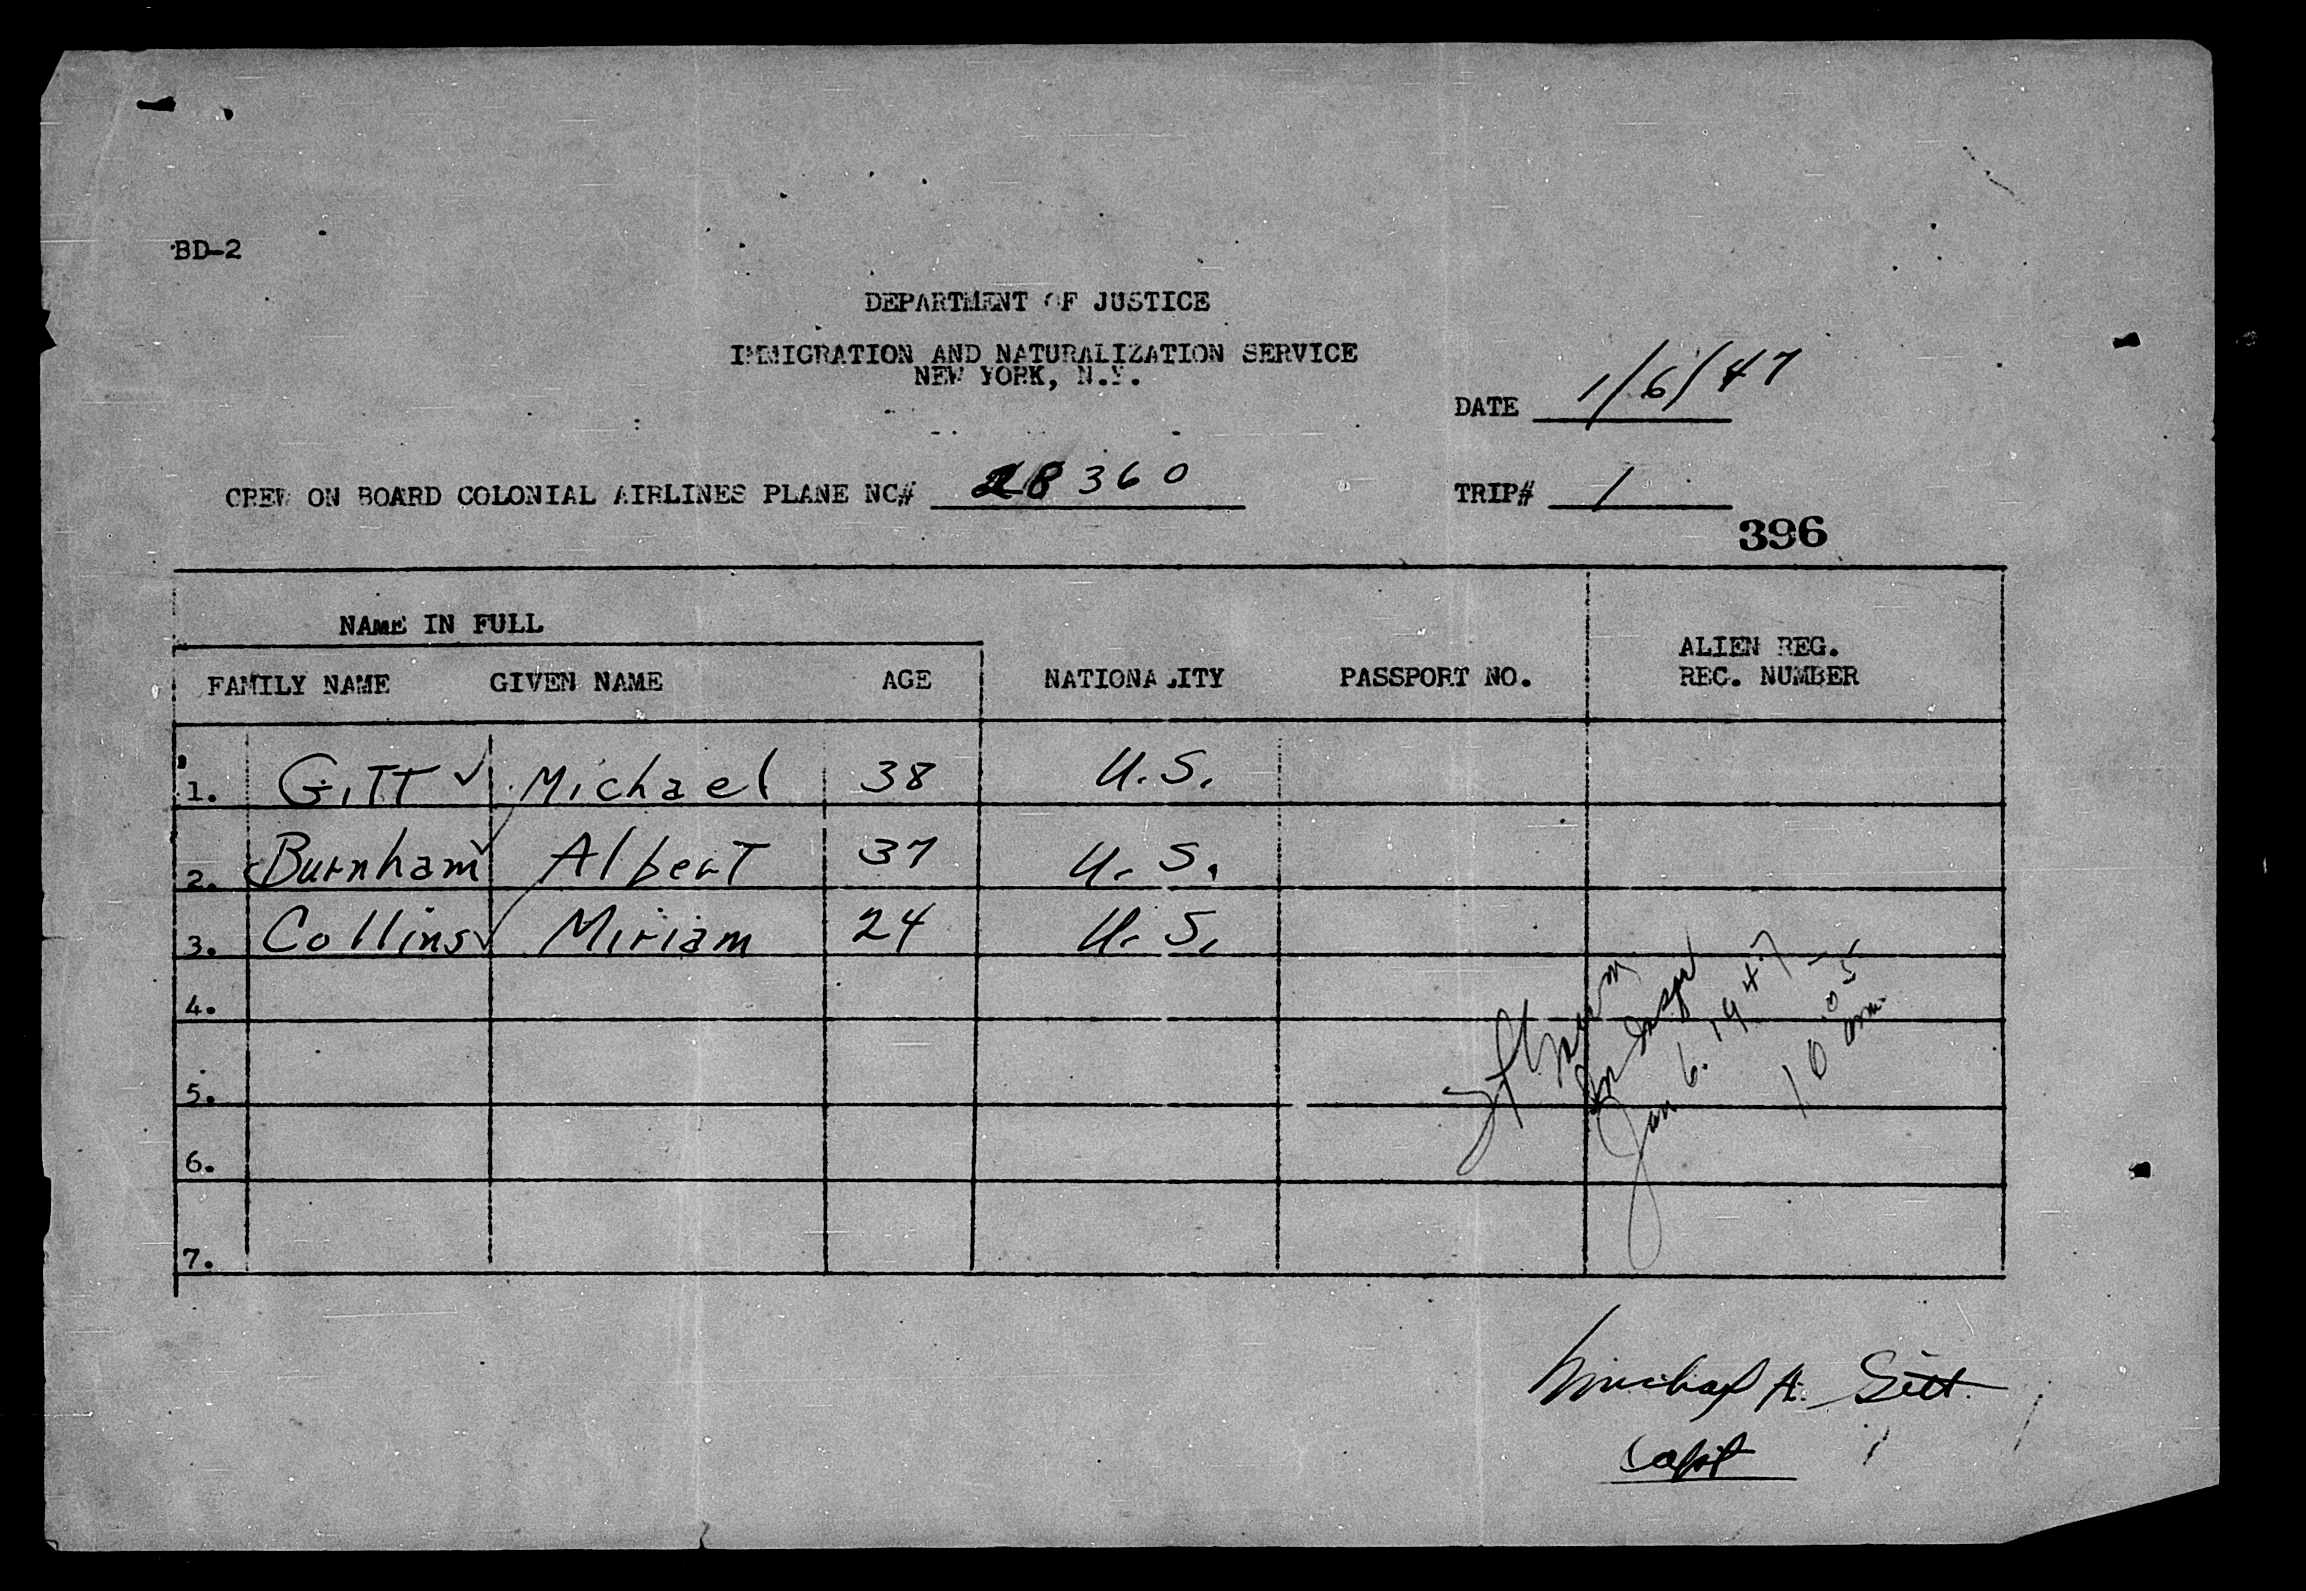 BD-2
DEPARTMENT OF JUSTICE
IMMIGRATION AND NATURALIZATION SERVICE
NEW YORK, N.Y.
DATE 1/6/47
CREW ON BOARD COLONIAL AIRLINES PLANE NC# 28360
TRIP# 1
396
NAME IN FULL
FAMILY NAME GIVEN NAME AGE NATIONALITY PASSPORT NO. ALIEN REG. REC. NUMBER
1. Gitt ✓ Michael 38 U.S.
2. Burnham ✓ Albert 37 U.S.
3. Collins ✓ Miriam 24 U.S.
4.
5.
6.
7.
Im Inspr
Jan 6. 1947
10:05 am.
Michael A. Gitt
Capt